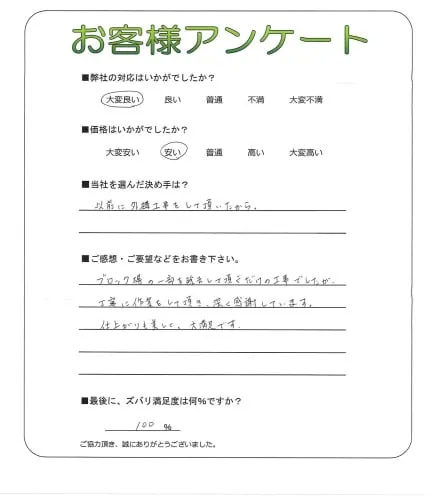 お客様アンケート
■弊社の対応はいかがでしたか？
大変良い 良い 普通 不満 大変不満
■価格はいかがでしたか？
大変安い 安い 普通 高い 大変高い
■当社を選んだ決め手は？
以前に外構工事をして頂いたから、
■ご感想・ご要望などをお書き下さい。
ブロック塀の一部を除去して頂くだけの工事でしたが、
丁寧に作業をして頂き、深く感謝しています。
仕上がりも美しく、大満足です。
■最後に、ズバリ満足度は何％ですか？
100 ％
ご協力頂き、誠にありがとうございました。